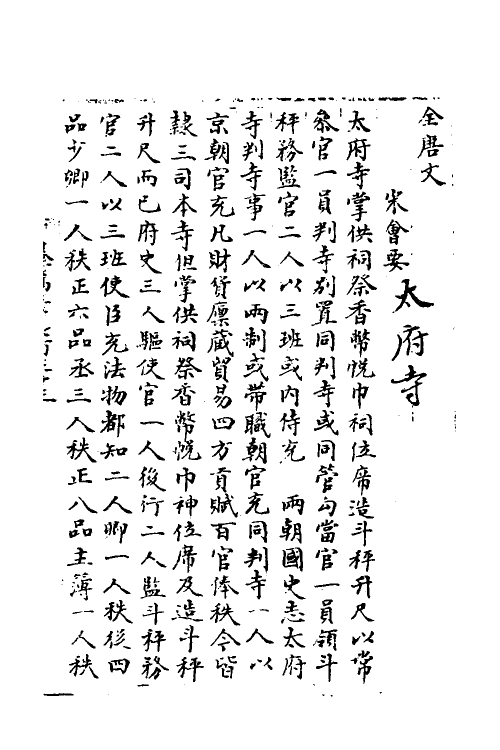 全唐文
宋會要
太府寺
太府寺掌供祠祭香幣帨巾祠位席造斗秤升尺以常
叅官一員判寺别置同判寺或同管勾當官一員領斗
秤務監官二人以三班或内侍充　兩朝國史志太府
寺判寺事一人以兩制或帶職朝官充同判寺一人以
京朝官充凡財貨廪藏貿易四方貢賦百官俸秩今皆
隸三司本寺但掌供祠祭香幣帨巾神位席及造斗秤
升尺而已府史三人驅使官一人後行二人監斗秤務
官二人以三班使臣充法物都知二人卿一人秩從四
品少卿一人秩正六品丞三人秩正八品主簿一人秩